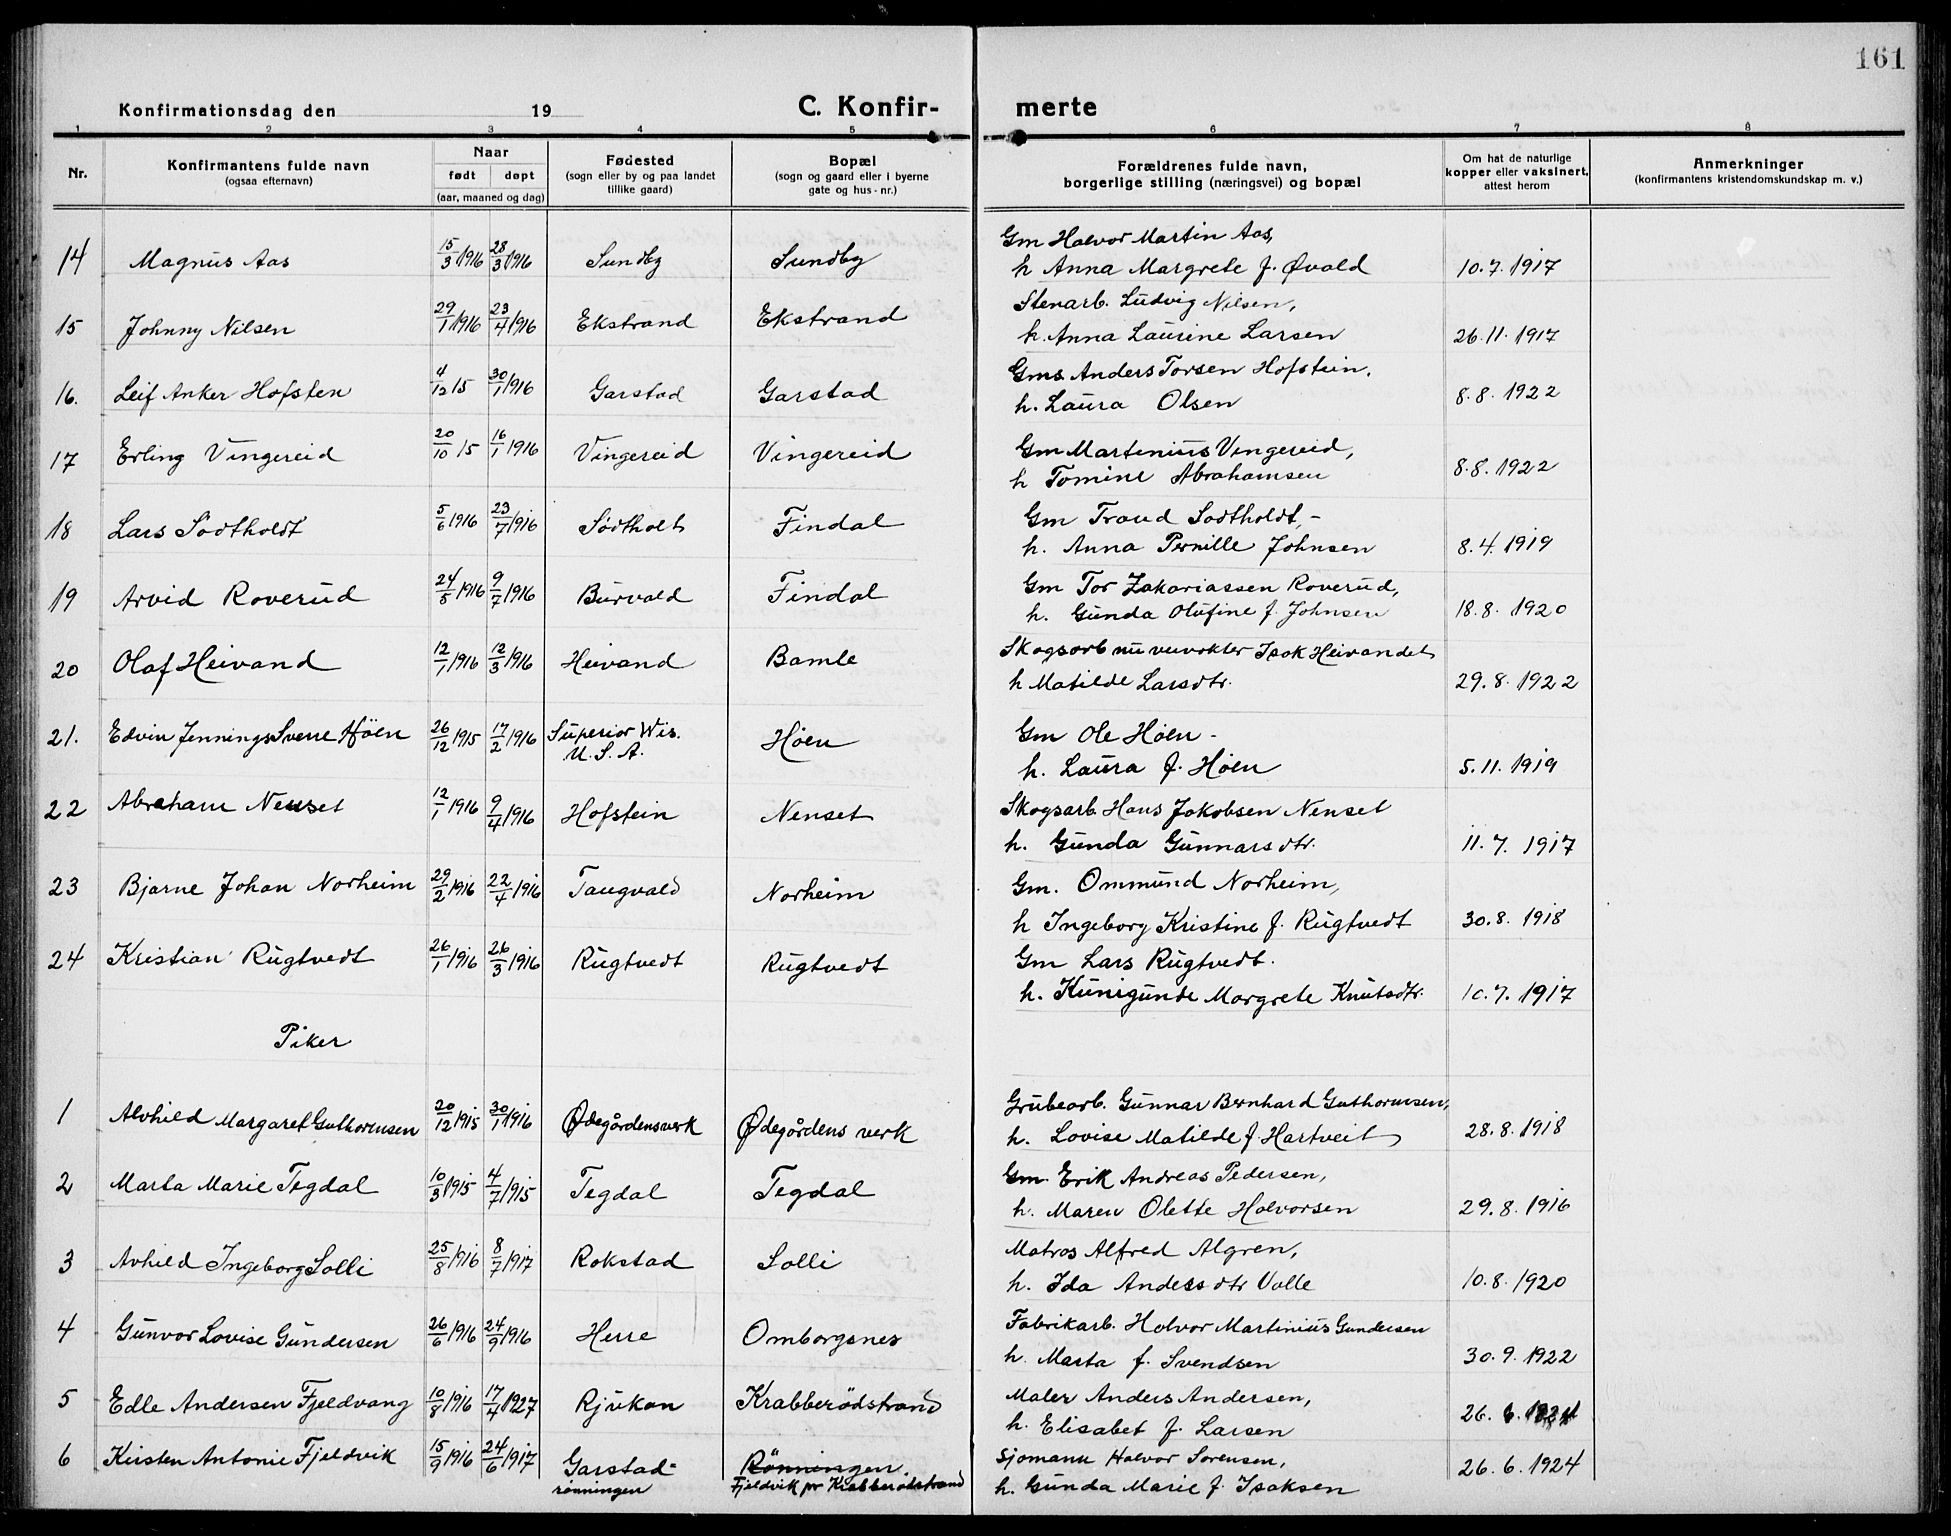 161
Konfirmationsdag den 19 C. Konfir- merte
1 2 3 4 5 6 7 8
Nr. Konfirmantens fulde navn (ogsaa efternavn) Naar født døpt (aar, maaned og dag) Fødested (sogn eller by og paa landet tillike gaard) Bopæl (sogn og gaard eller i byerne gate og hus-nr.) Forældrenes fulde navn, borgerlige stilling (næringsvei) og bopæl Om hat de naturlige kopper eller vaksinert, attest herom Anmerkninger (konfirmantens kristendomskundskap m. v.)
14 Magnus Aas 15/3 1916 28/3 1916 Sundby Sundby Gm Halvor Martin Aas,
h Anna Margrete f. Øvald 10.7.1917
15 Johnny Nilsen 29/1 1916 23/4 1916 Ekstrand Ekstrand Stenarb. Ludvig Nilsen,
h. Anna Laurine Larsen 26.11.1917
16. Leif Anker Hofsten 4/12 15 30/1 1916 Garstad Garstad Gms Anders Torsen Hofstein,
h. Laura Olsen 8.8.1922
17 Erling Vingereid 20/10 15 16/1 1916 Vingereid Vingereid Gm Martinius Vingereid,
h Tomine Abrahamsen 8.8.1922
18 Lars Södtholdt 5/6 1916 23/7 1916 Södtholt Findal Gm Trond Södtholdt, -
h. Anna Pernille Johnsen 8.4.1919
19 Arvid Roverud 24/5 1916 9/7 1916 Burvald Findal Gm Tor Zakariassen Roverud,
h. Gunda Olufine f. Johnsen 18.8.1920
20 Olaf Heivand 12/1 1916 12/3 1916 Heivand Bamle Skogsarb nu veivokter Isak Heivandet
h Matilde Larsdtr. 29.8.1922
21. Edvin Jennings Sverre Höen 26/12 1915 17/2 1916 Superior Wis. U.S.A. Höen Gm Ole Höen -
h. Laura f. Höen 5.11.1919
22 Abraham Nenset 12/1 1916 9/4 1916 Hofstein Nenset Skogsarb Hans Jakobsen Nenset
h. Gunda Gunnarsdtr. 11.7.1917
23 Bjarne Johan Norheim 29/2 1916 22/4 1916 Taugvald Norheim Gm. Ommund Norheim,
h Ingeborg Kristine f. Rugtvedt 30.8.1918
24 Kristian Rugtvedt 26/1 1916 26/3 1916 Rugtvedt Rugtvedt Gm Lars Rugtvedt.
h. Kunigunde Margrete Knutsdtr. 10.7.1917
Piker
1 Alvhild Margaret Guthormsen 20/12 1915 30/1 1916 Ødegårdensverk Ødegårdens verk Grubearb. Gunnar Bernhard Guthormsen,
h. Lovise Matilde f. Hartveit 28.8.1918
2 Marta Marie Tegdal 10/3 1915 4/7 1915 Tegdal Tegdal Gm. Erik Andreas Pedersen,
h. Maren Olette Halvorsen 29.8.1916
3 Avhild Ingeborg Solli 25/8 1916 8/7 1917 Rokstad Solli Matros Alfred Algren,
h. Ida Andersdtr Valle 10.8.1920
4 Gunvor Lovise Gundersen 26/6 1916 24/9 1916 Herre Omborgsnes Fabrikarb. Halvor Martinius Gundersen
h. Marta f. Svendsen 30.9.1922
5 Edle Andersen Fjeldvang 10/8 1916 17/4 1927 Rjukan Krabberödstrand Maler Anders Andersen,
h. Elisabet f. Larsen 26.6.1924
6 Kirsten Antonie Fjeldvik 15/9 1916 24/6 1917 Garstad= rönningen Rönningen. Fjeldvik pr Krabberödstrand Sjømann Halvor Sorensen,
h. Gunda Marie f. Isaksen 26.6.1924